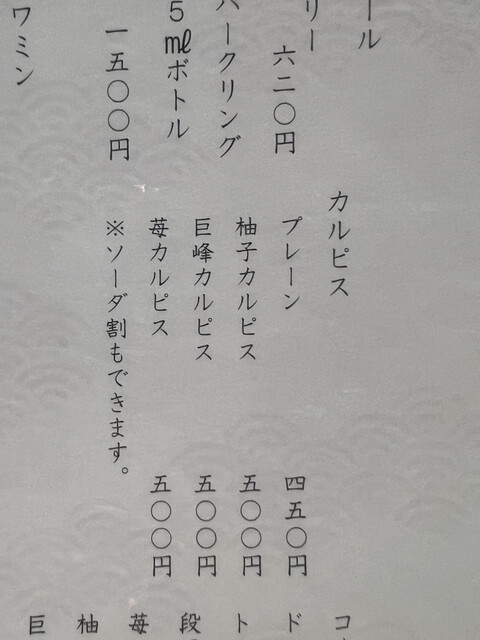 ール
リー
六二〇円
パークリング
5mlボトル
一五〇〇円
ワミン
カルピス
プレーン 四五〇円
柚子カルピス 五〇〇円
巨峰カルピス 五〇〇円
苺カルピス 五〇〇円
※ソーダ割もできます。
コ
ド
ト
段
苺
柚
巨